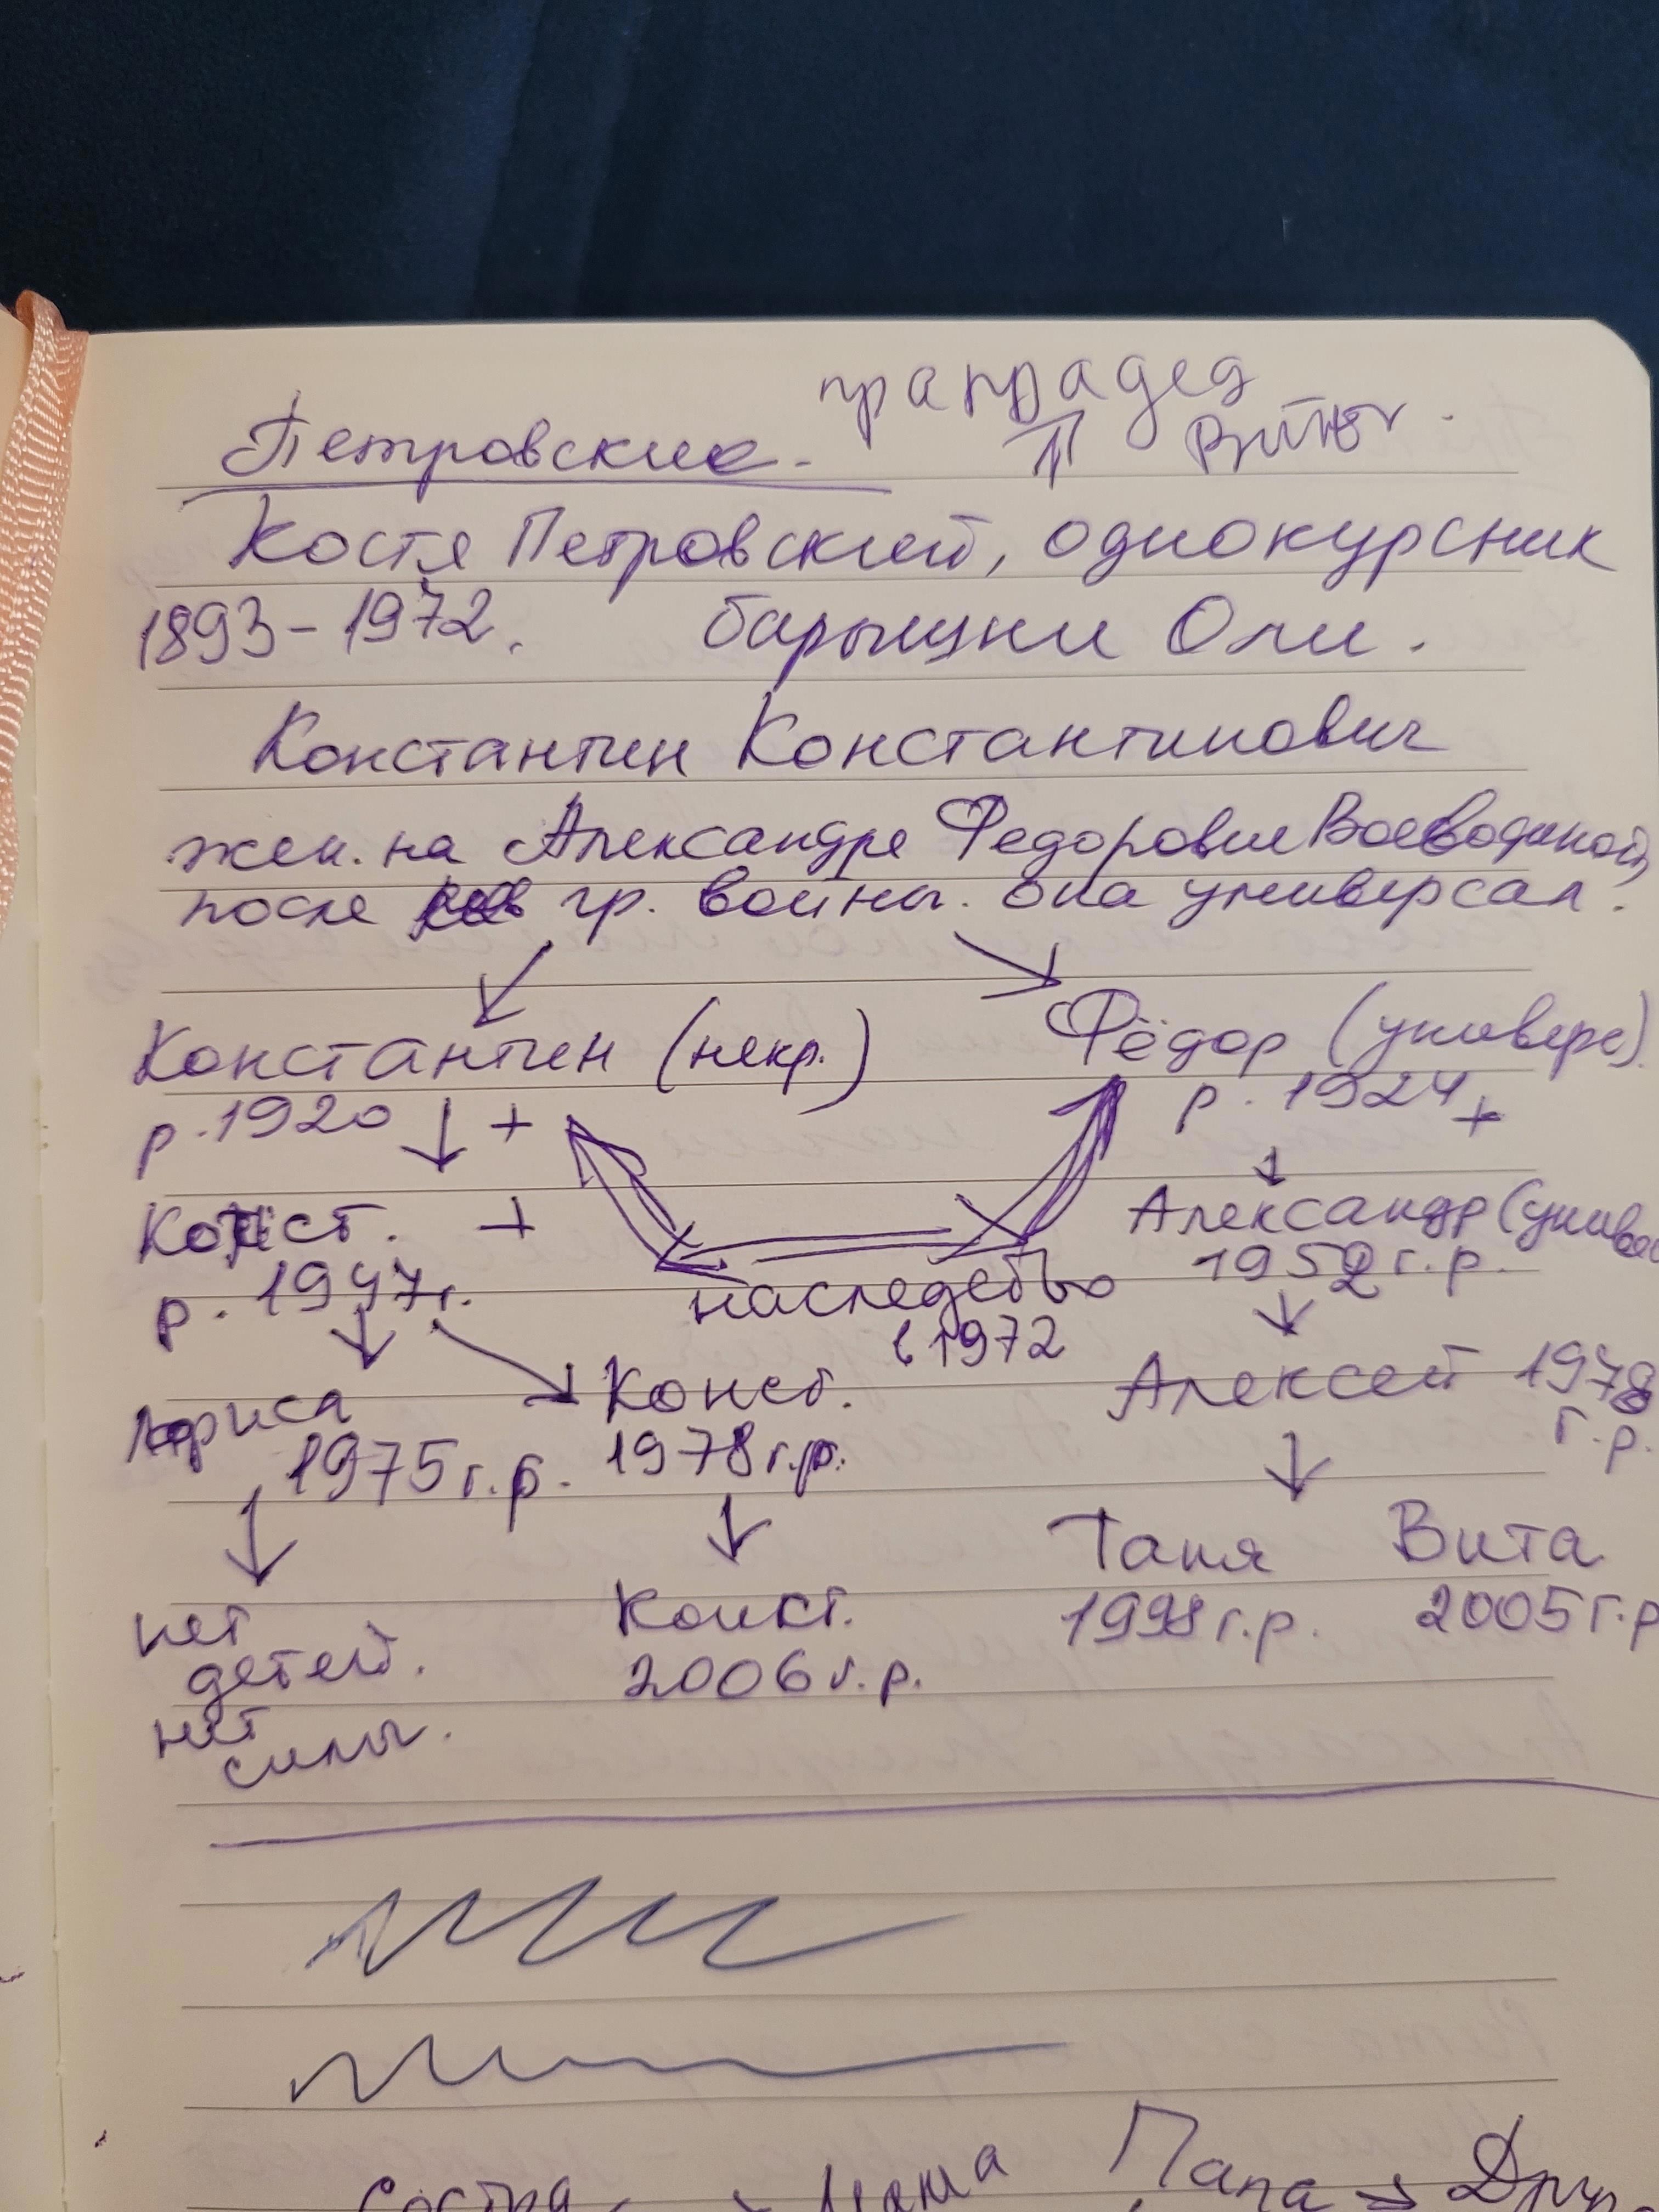 прапрадед
Петровские.
Костя Петровский, однокурсник
1893-1972. барышни Оли.
Константин Константинович
жен. на Александре Федоровне Воеводиной,
после гр. войны. она универсал.
Константин (некр.) Фёдор (универс).
р. 1920 + р. 1924 +
Конст. + Александр (универс
р. 1947г. 1952 г.р.
наследство
в 1972
Лариса Конст. Алексей 1978
1975 г.р. 1978 г.р. г.р.
Таня Вита
нет Конст. 1998 г.р. 2005 г.р
детей. 2006 г.р.
нет
силы.
Сестра Мама Папа → Друг